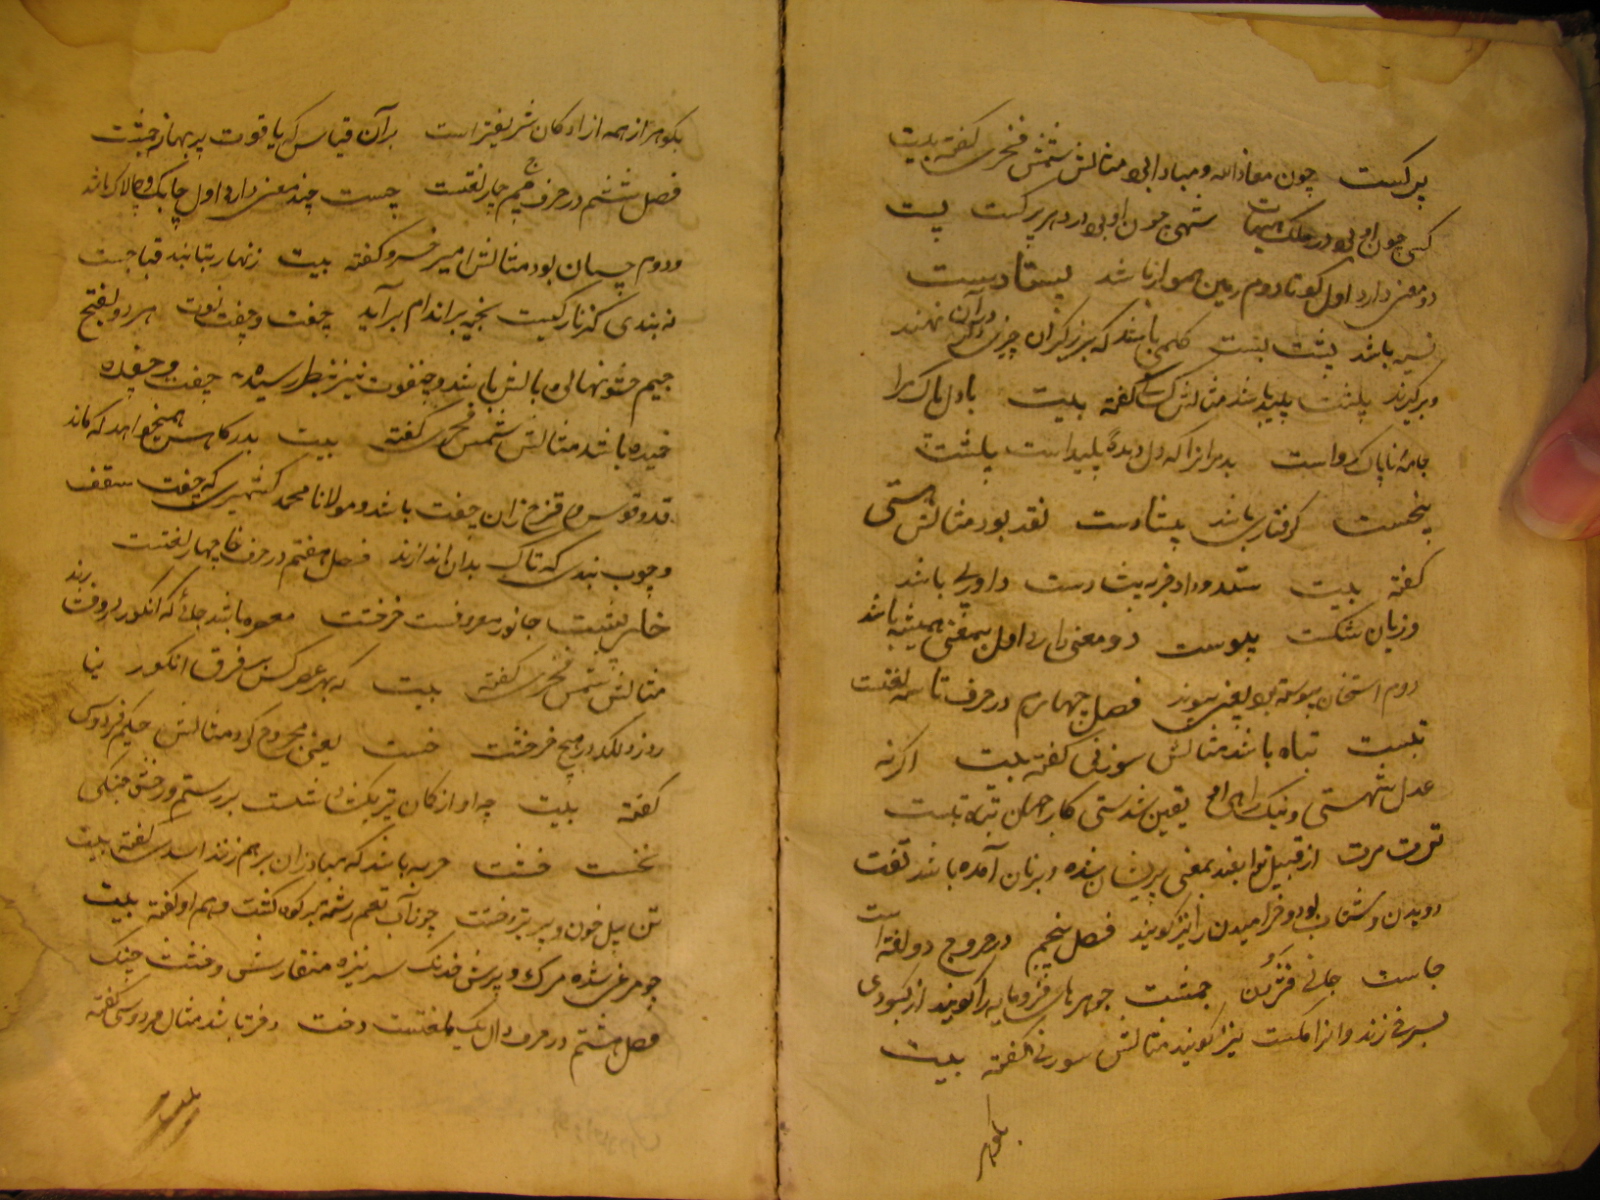 پرکست چون معاذ الله و مبادا بود مثالش شمس فخری گفته بیت
کسی چون او بود در ملک هیهات شهی چون او بود در دهر پرکست پست
دو معنی دارد اول کوتاه دوم زمین هموار باشد پستادست
نسیه باشد پشت بست کلیمی باشد که برزکران چیزی در آن نهند
و برگیرند پلشت پلید باشد مثالش گفته بیت با دل پاک مرا
جامه ناپاک رواست بد مرانرا که دل و دیده پلید است پلشت
پنخست گرفتاری باشد پستادست نقد بود مثالش
گفته بیت ستد و داد جز به پیشادست داوری باشد
و زیان شکست پیوست دو معنی دارد اول بمعنی همیشه باشد
دوم استخوان پیوسته بود یعنی پیوند فصل چهارم در حرف تا سه لغتست
تبست تباه باشد مثالش سوزنی گفته بیت اگر نه
عدل شهستی و نیک رای او یقین شدستی کار جهان تباه تبست
ترت مرت از قبیل توابعند بمعنی پریشان شده و بزبان آمده باشد تفت
دویدن و شتاب بود و خرامیدن را نیز گویند فصل پنجم در حرف ج دو لغت است
جاست جائی جمشت جوهر های فرومایه را گویند از کبودی
بسرخی زند و انرا کمست نیز گویند مثالش سوزنی گفته بیت
بگوهر
بگوهر از همه ازادکان شریفتر است برآن قیاس که یاقوت پر بها ز جمشت
فصل ششم در حرف چیم چهار لغتست چست چند معنی دارد اول چابک و چالاک باشد
و دوم چسبان بود مثالش امیر خسرو گفته بیت زنهار بتا بند قبا چست
نه بندی کز نازکیت بخیه بر اندام برآید چفت و چفت نوت هر دو بفتح
جیم حشو نهالی و بالش باشد و چغوت نیز بنظر رسیده چفت و چفده
خمیده باشد مثالش شمس فخری گفته بیت بدر کاهش همیخواهد که ماند
قد و قوس و قزح زان چفت باشد و مولانا محمد کشمیری که چفت سقف
و چوب بندی که تاک بدان اندازند فصل هفتم در حرف خا چهار لغتست
خارپشت جانور معروفست خرخشت معصره باشد جائی که انگور در وفشرند
مثالش شمس فخری گفته بیت که بهر عصر کسی بر فرق انگور نیا
رد زد لکد در هیچ خرخشت خست یعنی مجروح کرد مثالش حکیم فردوسی
گفته بیت چه او از کمان تیر بکشاد شست بر رستم و رخش جنگی
بخست خشت حربه باشد که مبارزان بر هم زنند اسدی گفته بیت
تن پیل خون و پر تیر و خشت چو زآب بقم رشته بر کوه کشت و هم او گفته بیت
چو مرغی شده مرک و پرش خدنگ سر نیزه منقارش و خشت چنک
فصل هشتم در حرف دال یک لغتست دخت دختر باشد مثال فردوسی گفته